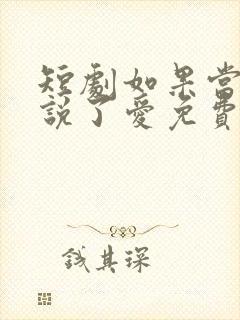 短劇如果當
說了愛免費
錢其琛